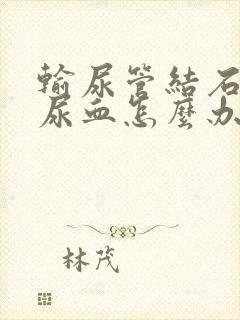 輸尿管結石
尿血怎麼办
林茂